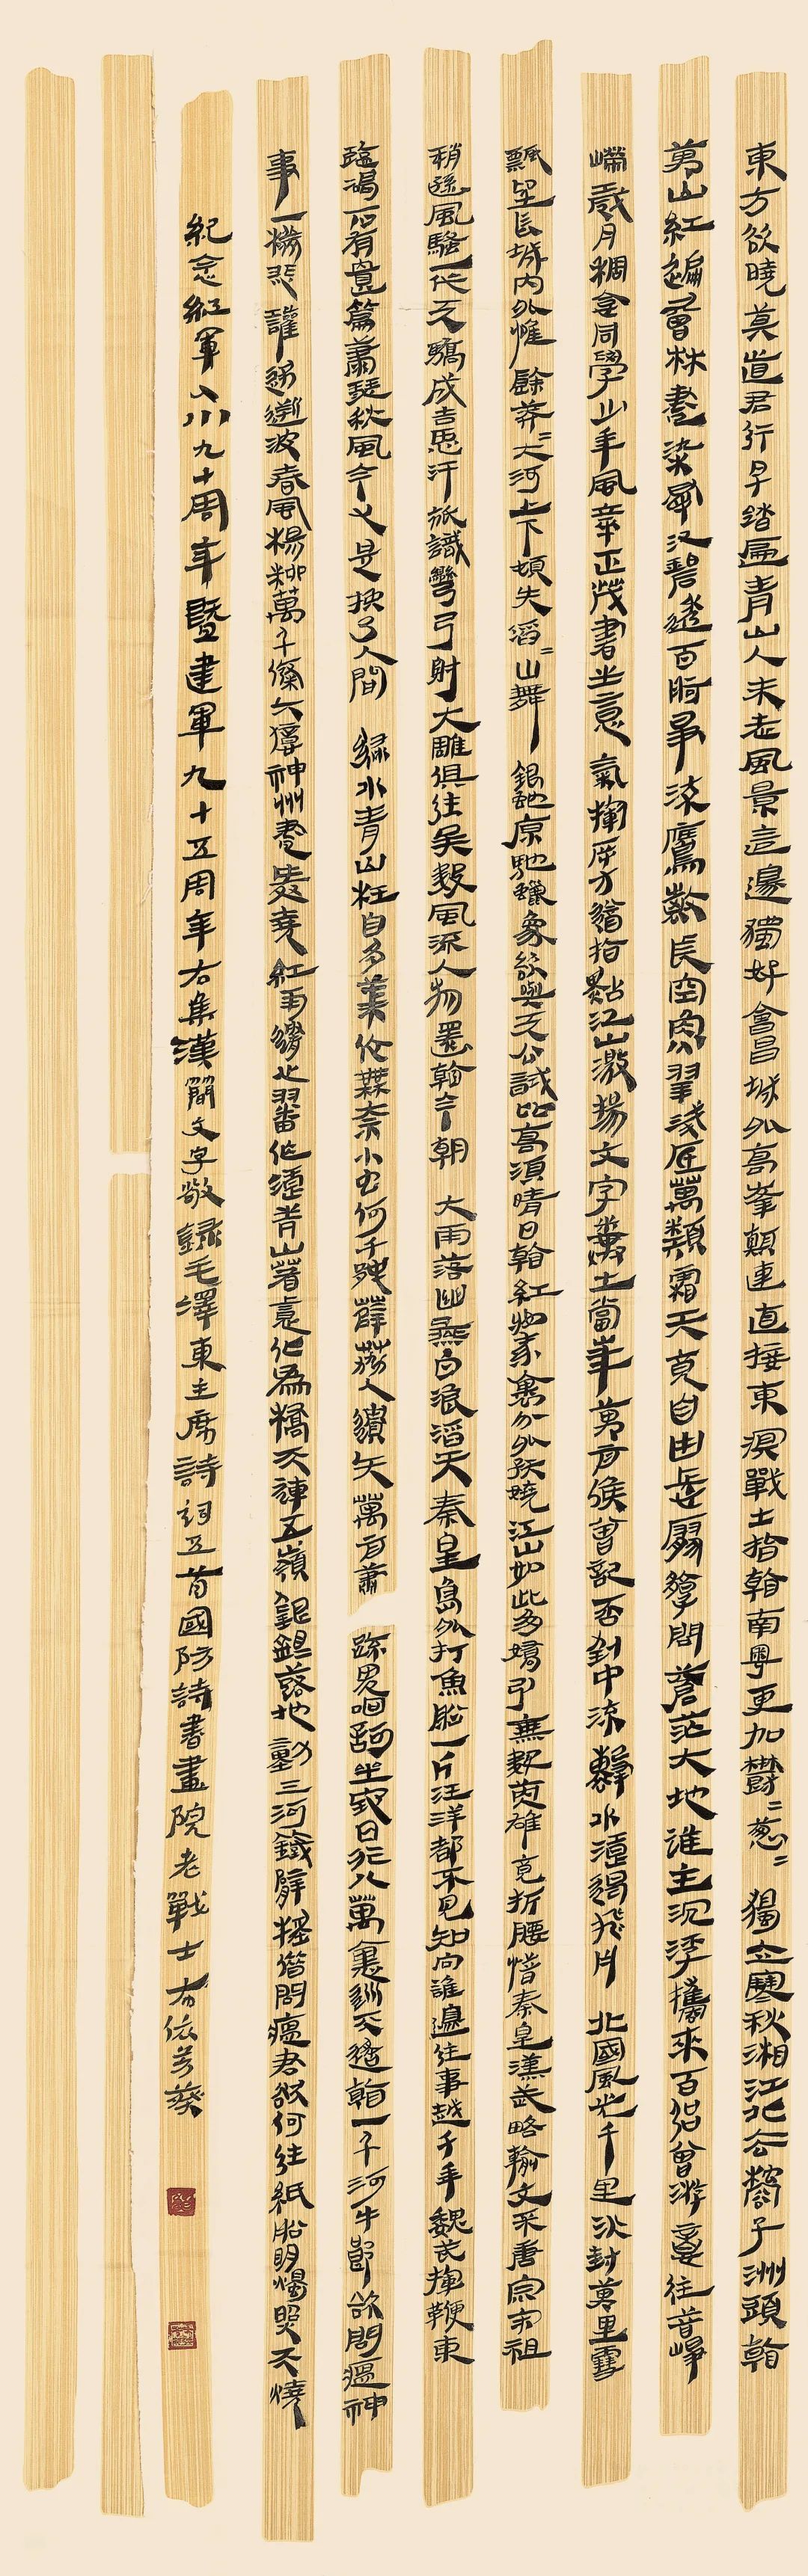 東方欲曉莫道君行早踏遍青山人未老風景這邊獨好會昌城外高峯顛連直接東溟戰士指看南粵更加鬱=葱= 獨立寒秋湘江北去橘子洲頭看
萬山紅遍層林盡染漫江碧透百舸爭流鷹擊長空魚翔淺底萬類霜天竟自由悵寥廓問蒼茫大地誰主沉浮攜來百侶曾游憶往昔崢
嶸歲月稠恰同學少年風華正茂書生意氣揮斥方遒指點江山激揚文字糞土當年萬戶侯曾記否到中流擊水浪遏飛舟 北國風光千里冰封萬里雪
飄望長城內外惟餘莽=大河上下頓失滔=山舞銀蛇原馳蠟象欲與天公試比高須晴日看紅妝素裹分外妖嬈江山如此多嬌引無數英雄竟折腰惜秦皇漢武略輸文采唐宗宋祖
稍遜風騷一代天驕成吉思汗祇識彎弓射大雕俱往矣數風流人物還看今朝 大雨落幽燕白浪滔天秦皇島外打魚船一片汪洋都不見知向誰邊往事越千年魏武揮鞭東
臨碣石有遺篇蕭瑟秋風今又是換了人間 綠水青山枉自多華佗無奈小虫何千村薜荔人遺矢萬戶蕭疏鬼唱歌坐地日行八萬里巡天遙看一千河牛郎欲問瘟神
事一樣悲歡逐逝波春風楊柳萬千條六億神州盡舜堯紅雨隨心翻作浪青山著意化為橋天連五嶺銀鋤落地動三河鐵臂搖借問瘟君欲何往紙船明燭照天燒
紀念紅軍入川九十周年暨建軍九十五周年右集漢簡文字敬錄毛澤東主席詩詞五首國防詩書畫院老戰士布依